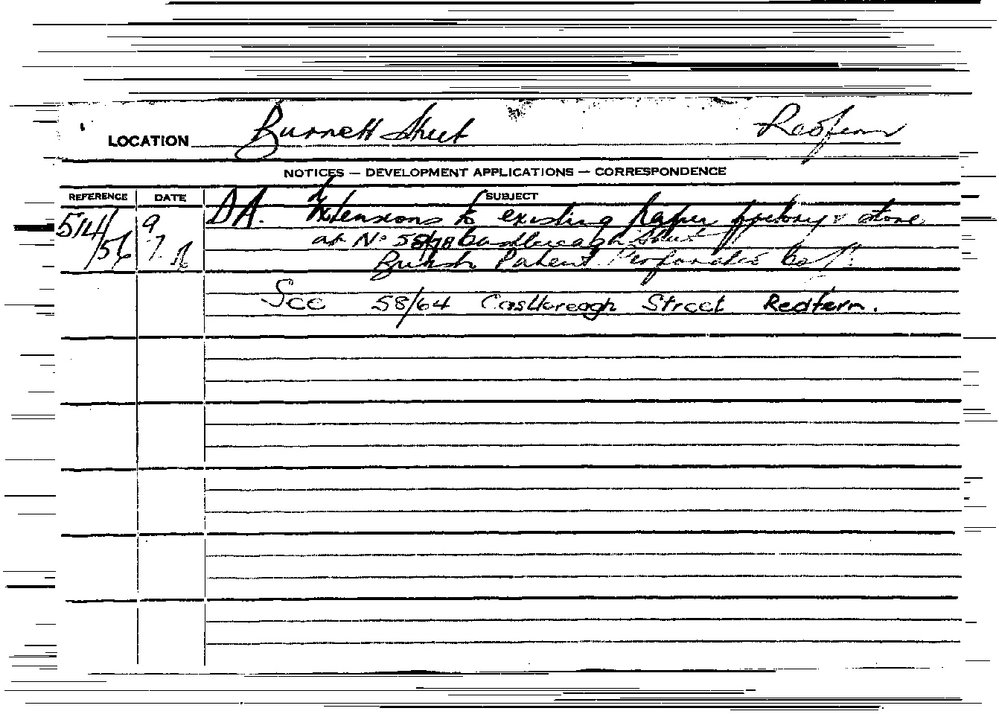 LOCATION Burnett Street Redfern
NOTICES — DEVELOPMENT APPLICATIONS — CORRESPONDENCE
REFERENCE DATE SUBJECT
514/56 9.7. DA. Extensions to existing paper factory & store
at No Castlereagh Street
British Patent Perforated
See 58/64 Castlereagh Street Redfern.